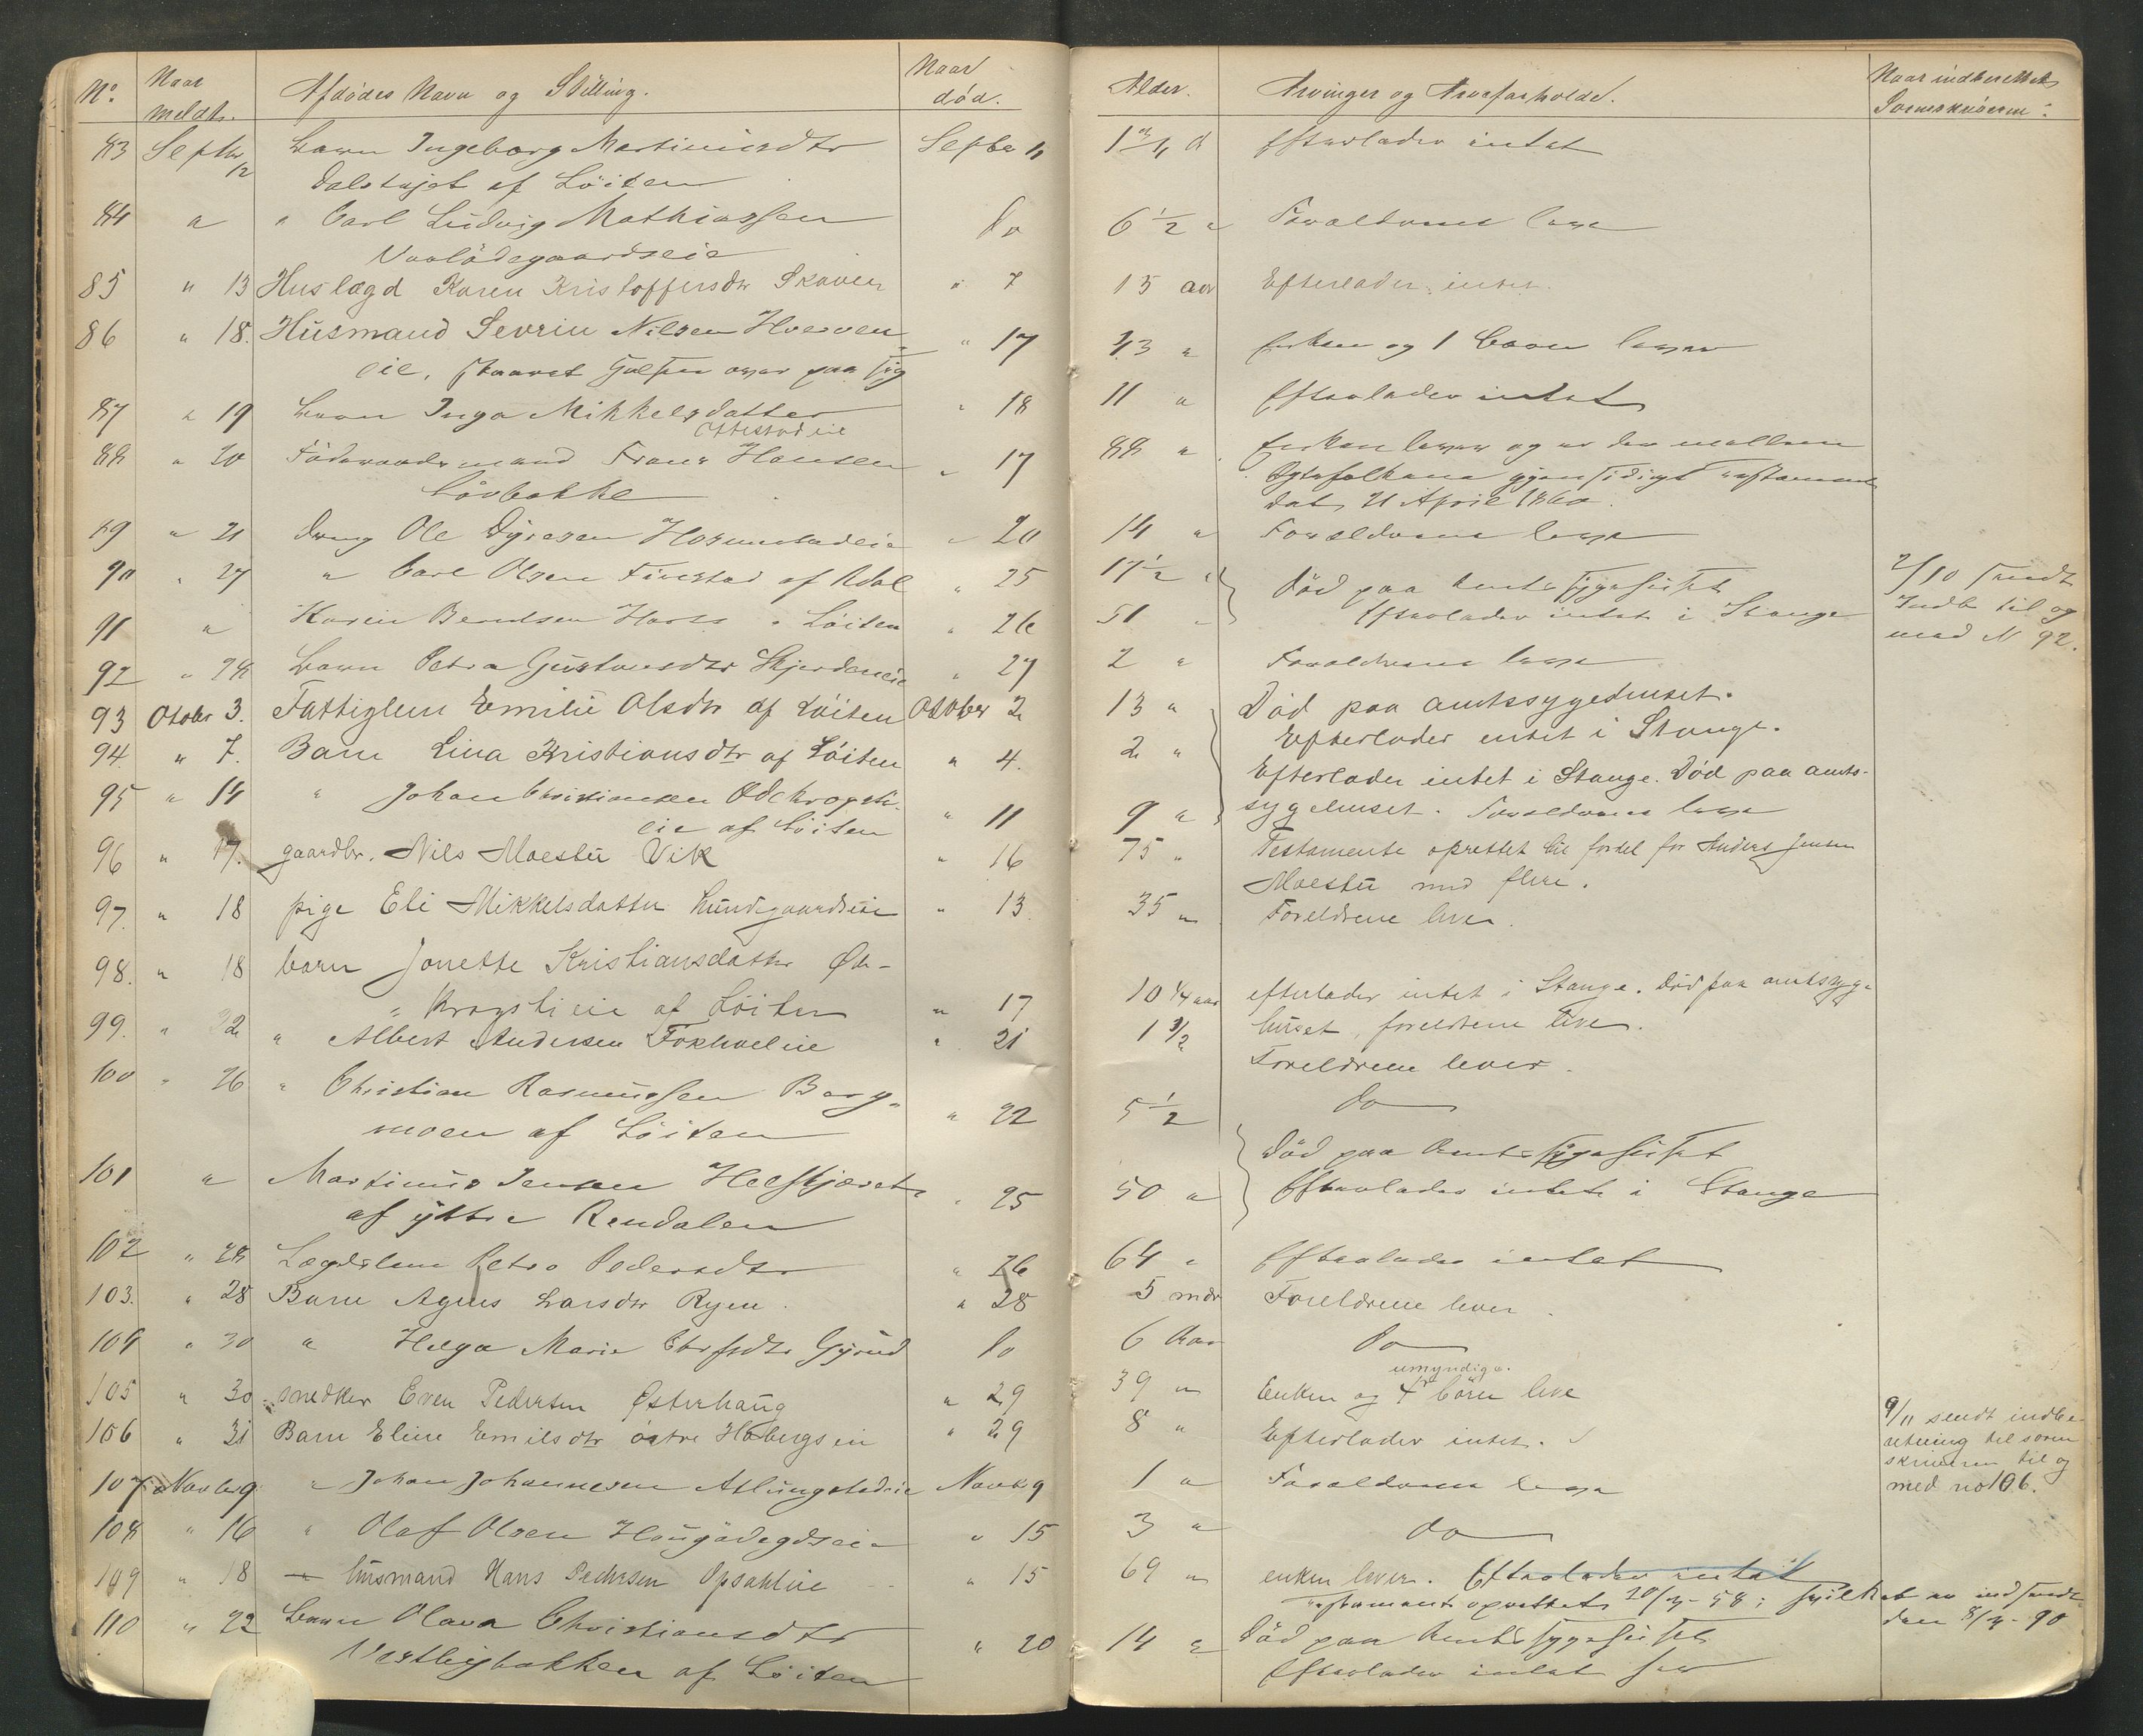 No. Naar meldt. Afdødes Navn og Stilling. Naar død. Alder. Arvinger og Arveforholde. Naar indberettet Sorenskriveren.
83 Septbr 12 Barn Ingeborg Martinusdtr Septbr 11 Efterlader intet
af Löiten
84 " " Carl Ludvig Mathiassen do 6 1/2 " Forældrene leve
85 " 13 Huslægd Karen Kristoffersdtr Skaven " 7 15 aar Efterlader intet.
86 " 18. Husmand Sevrin Nilsen " 17 43 " Enken og 1 barn lever
eie,
87 " 19 Barn Inga Mikkelsdatter " 18 11 " Efterlader intet
Ottestadeie
88 " 20 Föderaadsmand Frans Hansen " 17 88 " Enken lever og er der mellem
Lövbakke Ægtefolkene gjensidigt Testament
dat. 21 April 1860.
89 " 21 dreng Ole Dyresen " 20 14 " Forældrene leve
90 " 27 " Carl Olsen Finstad af Aadal " 25 17 1/2 " Död paa Amtssygehuset 2/10 sendt
91 " Karen Berntsen " Löiten " 26 51 " Efterlader intet i Stange Indb. til og
med N 92.
92 " 28 Barn Petra Gustavsdtr " 27 2 " Forældrene leve
93 Otober 3. Fattiglem Emilie Olsdtr af Löiten Otober 2 13 " Död paa amtssygehuset.
Efterlader intet i Stange.
94 " 7. Barn Lina Kristiansdtr af Löiten " 4. 2 " Efterlader intet i Stange. Död paa amts-
95 " 14 " Johan Christiansen Ödekrogsti- " 11 9 " sygehuset. Forældrene leve
eie af Löiten
96 " 17. gaardbr. Nils Moestu Vik " 16 75 " Testamente oprettet til fordel for Anders Jensen
Moestu med flere.
97. " 18 pige Eli Mikkelsdatter " 13. 35 " Foreldrene lever.
98. " 18 barn Jonette Kristiansdatter Øde-
" krogstieie af Löiten " 17 10 1/4 aar efterlader intet i Stange. død paa amtssyge-
huset, foreldrene leve.
99. " 22 " Albert Andersen Fokholeie " 21 1 1/2 Foreldrene lever.
100 " 26 " Christian Rasmussen Berg- " 22 5 1/2 do
moen af Löiten Död paa Amtssygehuset
101 " Martinus Jensen " 25 50 " Efterlader intet i Stange
af yttre Rendalen
102 " 28 Lægdslem Petra Pedersdtr " 26 64 " Efterlader intet
103. " 28 Barn Agnes Larsdtr Ryen. " 28 5 mdr Foreldrene lever.
104 " 30 " Helga Marie Gyrud do 6 Aar do
umyndige.
105 " 30 snedker Even Pedersen Østerhaug " 29 39 " Enken og 4 börn leve
106 " 31 Barn Eline Emilsdtr östre Hobergseie " 29 8 " Efterlader intet. 9/11 sendt indbe-
retning til soren
skriveren til og
med no 106.
107 Novbr 9. " Johan Johannesen Atlungstadeie Novbr 9 1 " Forældrene leve
108 " 16 " Olaf Olsen " 15 3 " do
109 " 18 husmand Hans Pedersen Opsahleie " 15 69 " enken lever. Efterlader intet
Testament oprettet 20/4-58; hvilket er indsendt
den 8/4-90
110 " 22 Barn Olava Christiansdtr " 20 14 " Död paa Amtssygehuset
Vestbybakken af Löiten Efterlader intet her